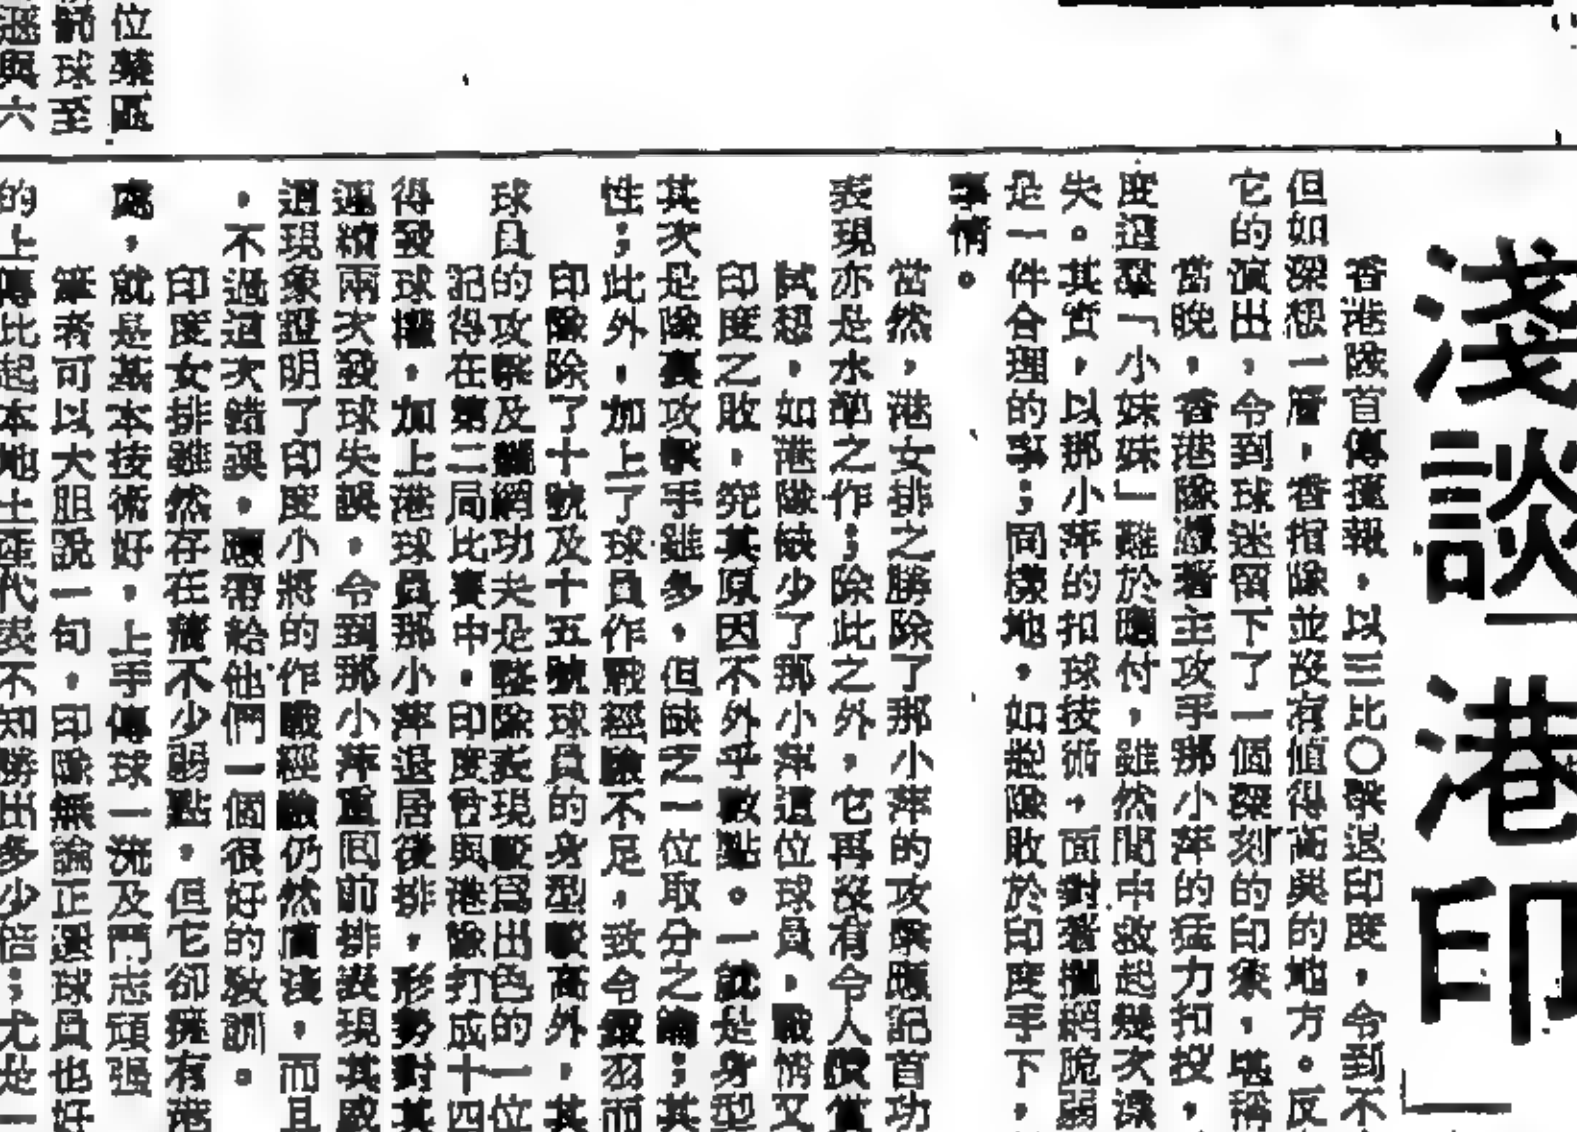 淺談「港印」
香港隊首傳捷報，以三比〇擊退印度，令到不
但如深想一層，香港隊並沒有值得高興的地方。反
它的演出，令到球迷留下了一個深刻的印象，堪稱
當晚，香港隊憑着主攻手那小萍的猛力扣投，
度這羣「小妹妹」難於應付，雖然間中救起幾次
失。其實，以那小萍的扣球技術，面對着攔網脆弱
是一件合理的事；同樣地，如港隊敗於印度手下，
事情。
當然，港女排之勝除了那小萍的攻擊應記首功
表現亦是水準之作；除此之外，它再沒有令人
試想，如港隊缺少了那小萍這位球員，戰情又
印度之敗，究其原因不外乎數點。一就是身型
其次是隊裏攻擊手雖多，但缺乏一位取分之 ；其
性；此外，加上了球員作戰經驗不足，致令 羽而
印隊除了十號及十五號球員的身型較高外，其
球員的攻擊及攔網功夫是整隊表現較爲出色的一位
記得在第二局比賽中，印度曾與港隊打成十四
得發球權，加上港球員那小萍退居後排，形勢對其
連續兩次發球失誤，令到那小萍重回前排表現其威
這現象證明了印度小將的作戰經驗仍然 淺，而且
，不過這次錯誤，應帶給他們一個很好的敎訓。
印度女排雖然存在着不少弱點，但它卻擁有港
處，就是基本技術好，上手傳球一流及鬥志頑强
筆者可以大胆說一句，印隊無論正選球員也好
的上 比起本地 代表不知勝出多少倍；尤是一
位 區
球至
與六